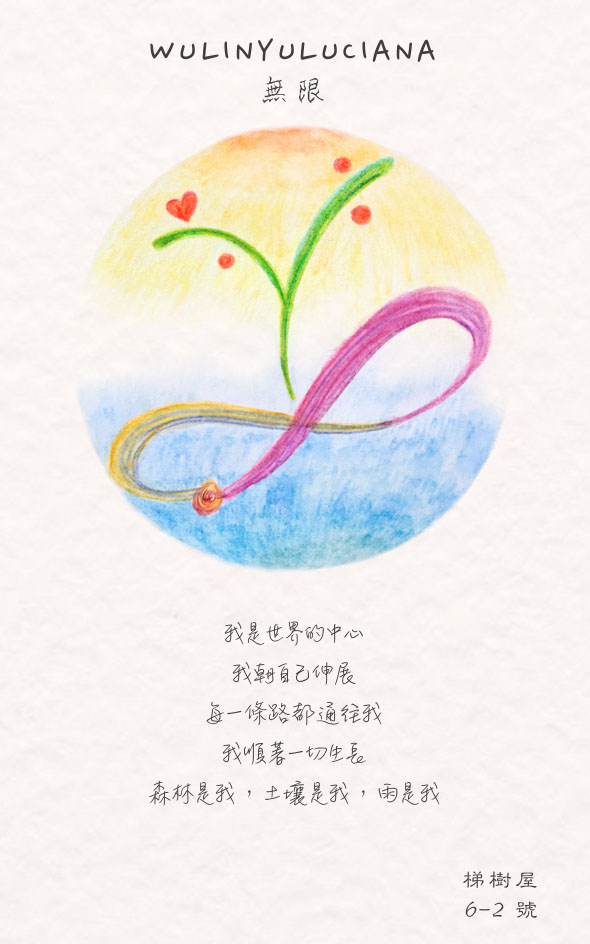 WULINYULUCIANA
無限
我是世界的中心
我朝自己伸展
每一條路都通往我
我順著一切生長
森林是我，土壤是我，雨是我
梯樹屋
6-2 號